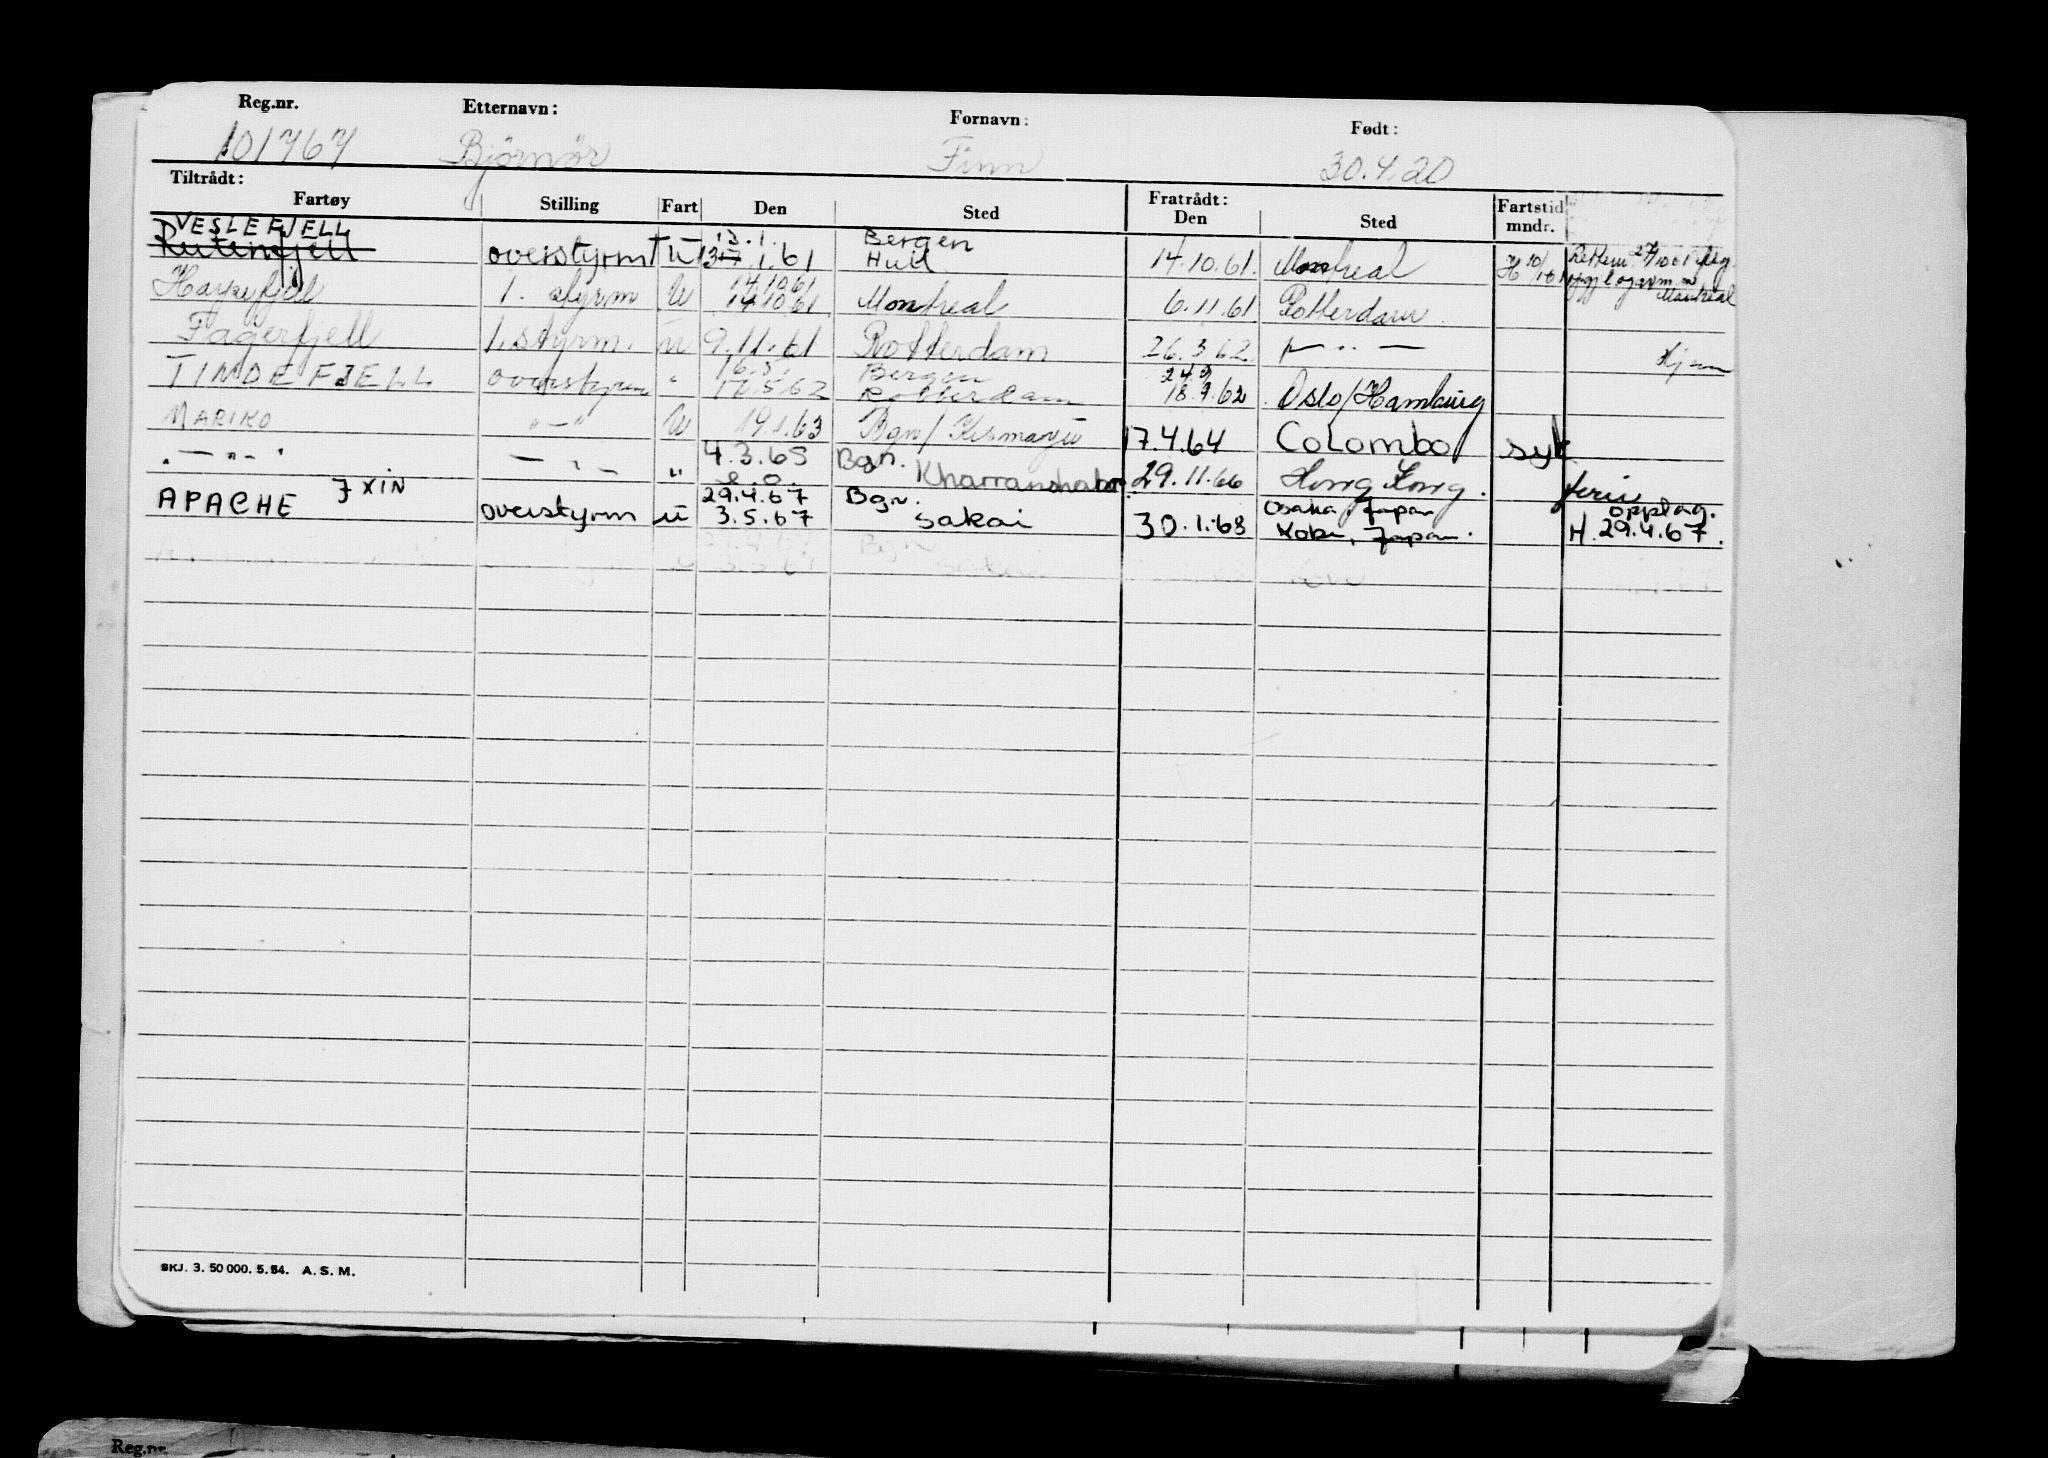 Reg.nr. Etternavn: Fornavn: Født:
101767 Björnör Finn 30.4.20
Tiltrådt: Fratrådt:
Fartøy Stilling Fart Den Sted Den Sted Fartstid mndr.
VESLEFJELL 12.1. Bergen
Rutenfjell overstyrm U 13 1.61 Hull 14.10.61. Montreal H 10/
14.10.61
1. styrm U 14.10.61 Montreal 6.11.61 Rotterdam Montreal
Fagerfjell 1. styrm. U 9.11.61 Rotterdam 26.3.62 — " — Hjem
16.5. Bergen 24.9
TINDEFJELL overstyrm " 17.5.62 Rotterdam 18.9.62 Oslo/Hamburg
MARIKO "—" U 19.1.63 Bgn/Kismayu 17.4.64 COLOMBO syk
"—"—" —"— " 4.3.65 Bgn. Kharramshahr 29.11.66 Hong Kong. ferie
e.o.
7 XIN 29.4.67 Bgn. Osaka, Japan opplag.
APACHE overstyrm U 3.5.67 Sakai 30.1.68 Kobe, Japan. H. 29.4.67.
29.4.67 Bgn
3.5.67 Sakai
SKJ. 3. 50 000. 5. 54. A. S. M.
Reg.nr.